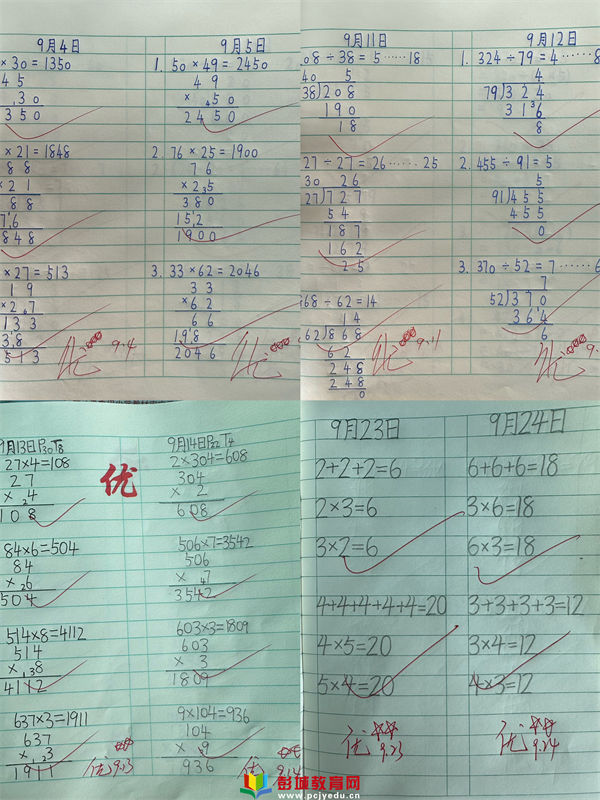 9月4日
×30=1350
45
30
350
×21=1848
88
×21
88
76
848
×27=513
19
×2.7
133
38
513
优
9.4
9月5日
1. 50×49=2450
49
×50
2450
2. 76×25=1900
76
×25
380
152
1900
3. 33×62=2046
33
×62
66
198
2046
优
9月11日
08÷38=5……18
40 5
38)208
190
18
27÷27=26……25
30 26
27)727
54
187
162
25
868÷62=14
14
62)868
62
248
248
0
优
9.11
9月12日
1. 324÷79=4……8
4
79)324
316
8
2. 455÷91=5
5
91)455
455
0
3. 370÷52=7……6
7
52)370
364
6
优
9月13日P30T8
27×4=108
27
×24
108
84×6=504
84
×26
504
514×8=4112
514
×138
4112
637×3=1911
637
×123
1911
优
优9.13
9月14日P32T4
2×304=608
304
× 2
608
506×7=3542
506
× 47
3542
603×3=1809
603
× 3
1809
9×104=936
104
× 9
936
优
9.14
9月23日
2+2+2=6
2×3=6
3×2=6
4+4+4+4+4=20
4×5=20
5×4=20
优 9.23
9月24日
6+6+6=18
3×6=18
6×3=18
3+3+3+3=12
3×4=12
4×3=12
优 9.24
彭城教育网
www.pcjyedu.cn